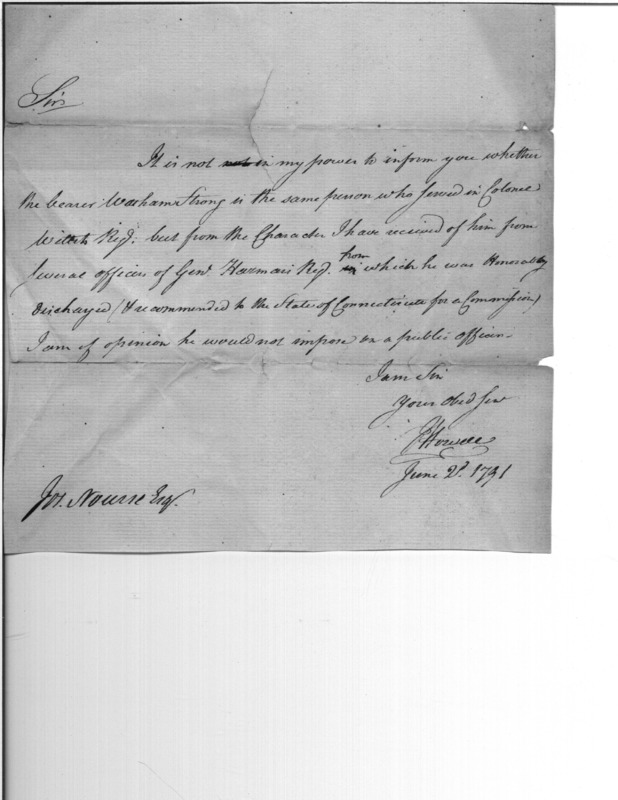 Sir
It is not not in my power to inform you whether
the bearer Warham Strong is the same person who served in Colonel
Regt. but from the Character I have received of him from
several officers of Genl Harmars Regt. from in which he was Honorably
discharged (& recommended to the State of Connecticutt for a Commission)
I am of opinion he would not impose on a public officer.
I am Sir
Your Obed Serv
J Howell
June 2d. 1791
Jos. Nourse Esq.